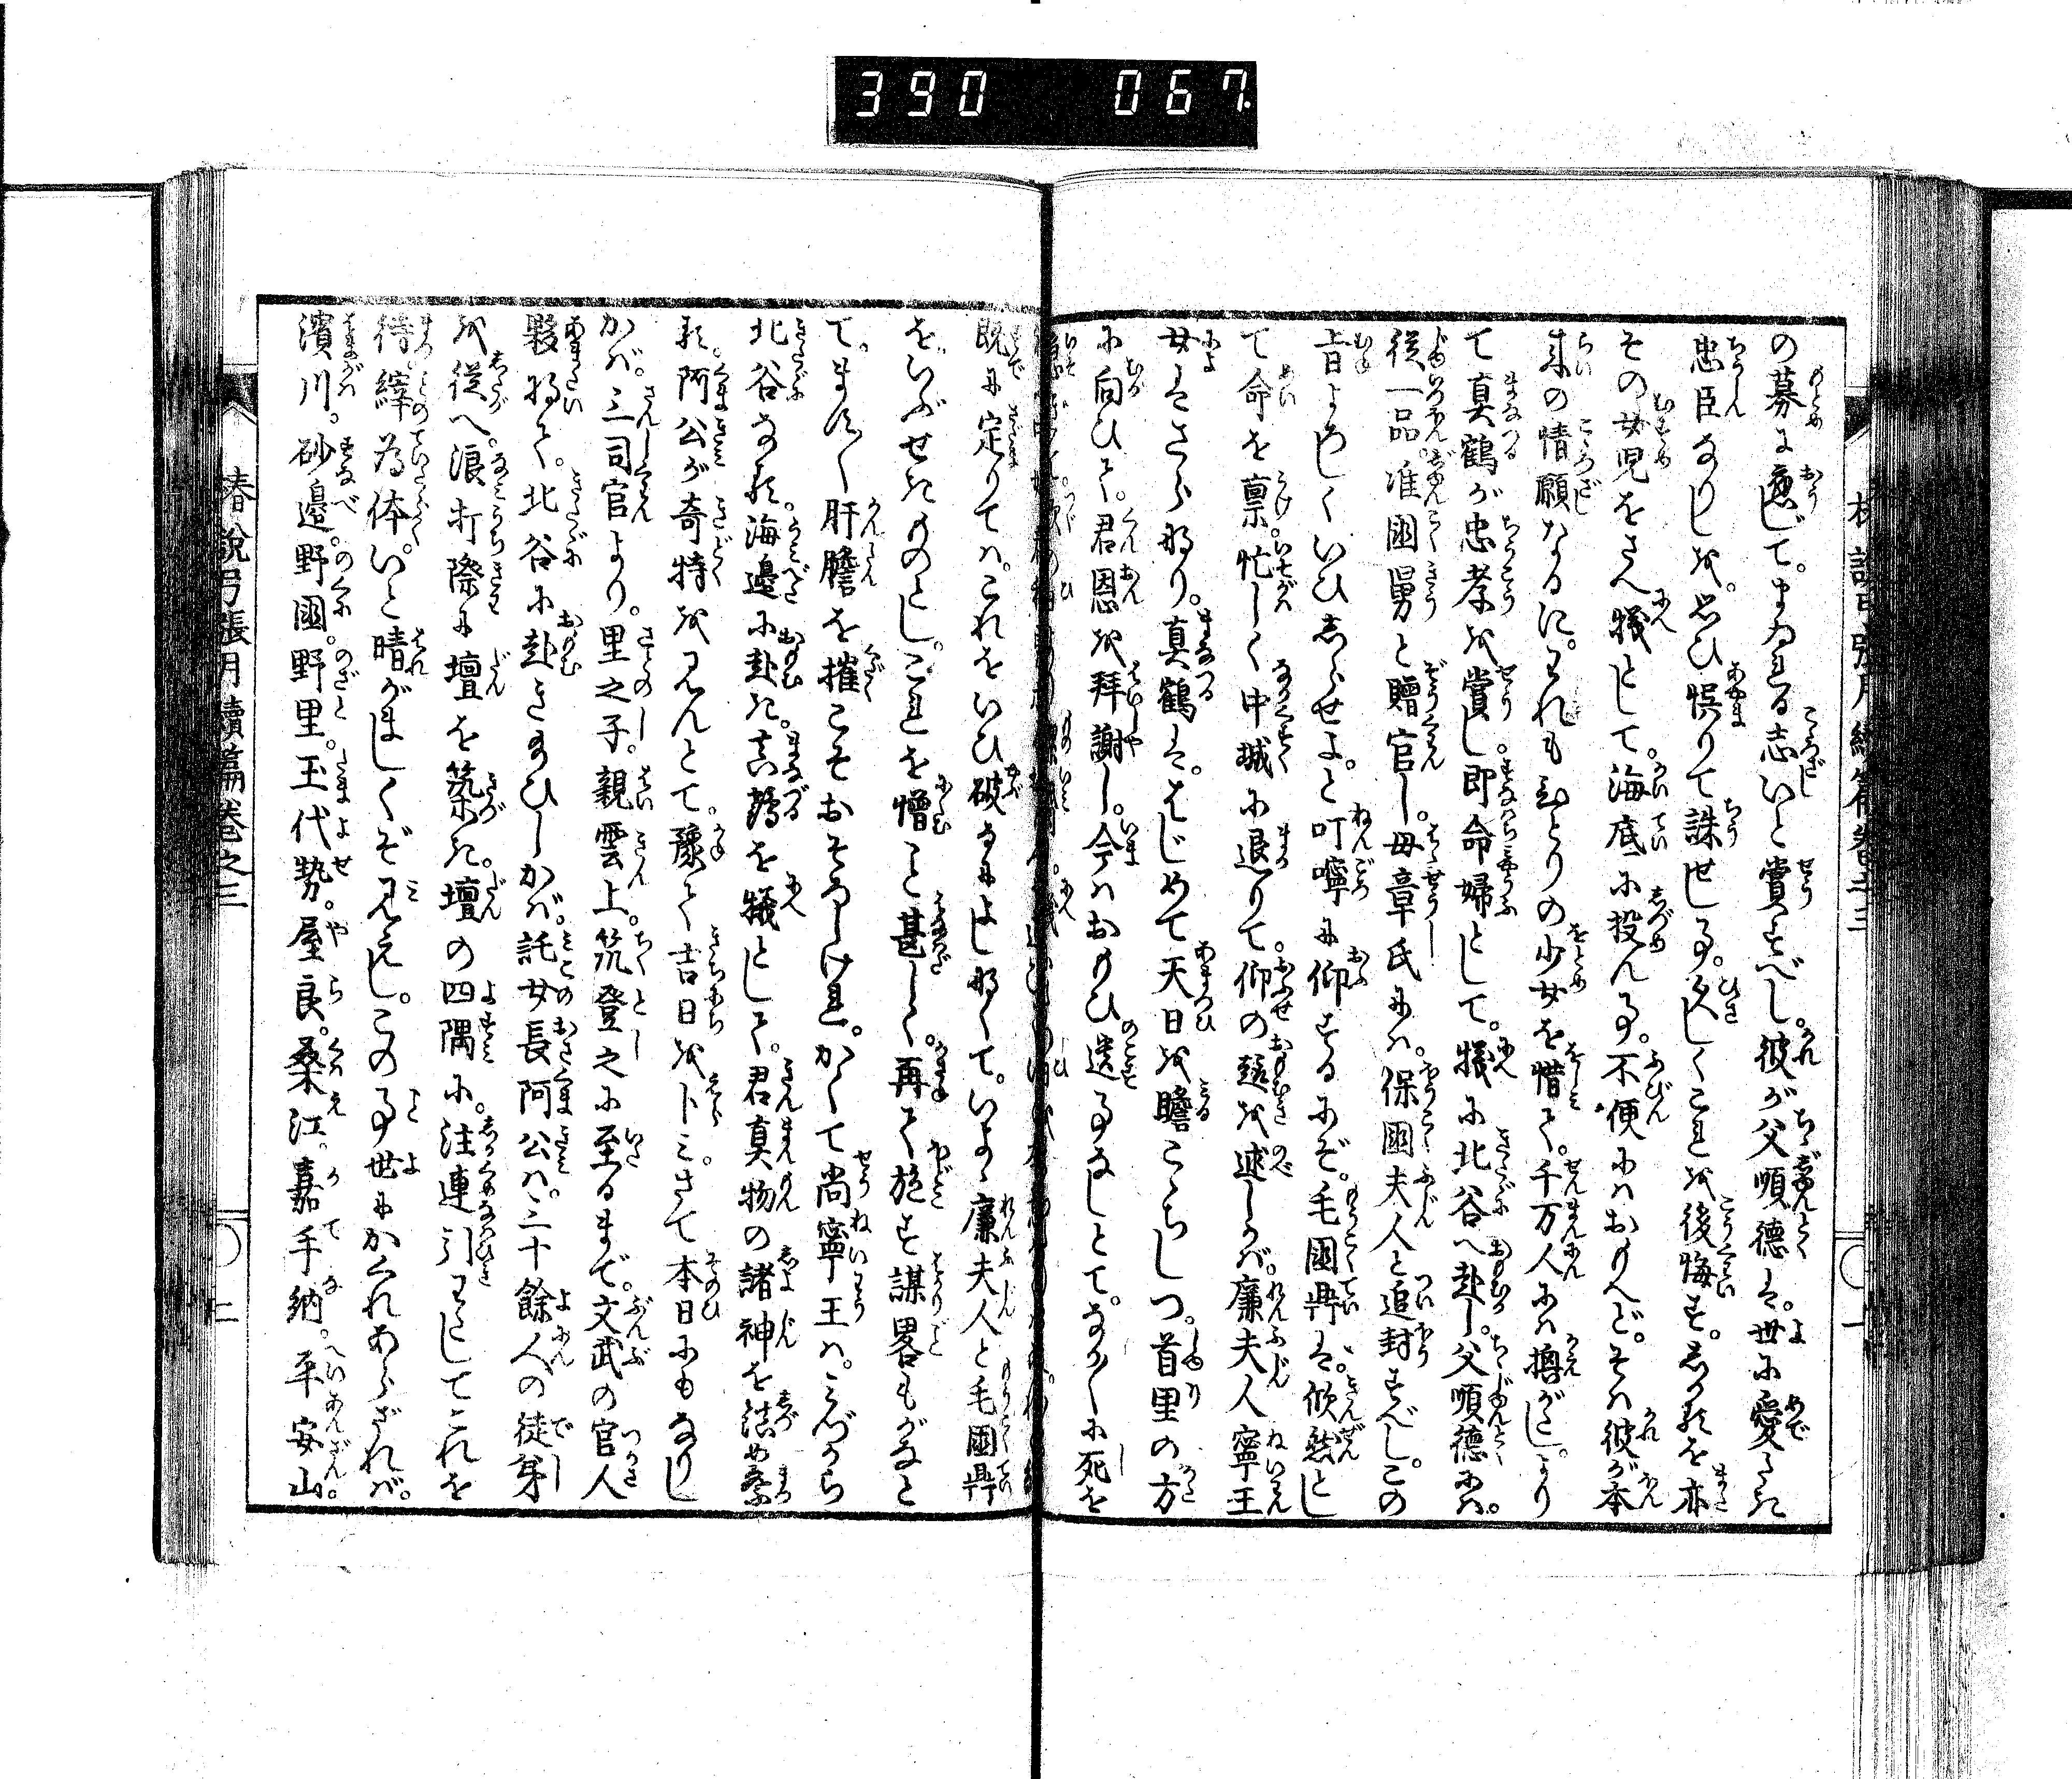 390 067
の募に應じて。まゐれる志いと賞すべし。彼が父順徳は。世に愛たき
忠臣なりしを。思ひ悞りて誅せし事。久しくこれを後悔す。しかるを亦
その女児をさへ犠として。海底に投ん事。不便にはおもへど。そは彼が本
来の情願なるに。われもひとりの少女を惜て。千万人には換がたし。よりて
て真鶴が忠孝を賞し。即命婦として。犠に北谷へ赴し。父順徳には。
従一品。准國舅と贈官し。母章氏には。保國夫人と追封すべし。この
旨よろしくいひしらせよ。と叮嚀に仰するにぞ。毛國鼎は。欣然とし
て命を禀。忙しく中城に退りて。仰の趣を述しかば。廉夫人寧王
女はさら也。真鶴は。はじめて天日を瞻こゝちしつ。首里の方
に向ひて。君恩を拜謝し。今はおもひ遺す事なしとて。なか〳〵に死を
既に定りては。これをいひ破るによしなくて。いよゝ廉夫人と毛國鼎
をいぶせきものとし。これを憎こと甚しく。再て施す謀畧もがなと
て。ます〳〵肝膽を摧こそおそろしけれ。かくて尚寧王は。みづから
北谷なる。海邊に赴き。真鶴を犠として。君真物の諸神を詰め祭
る。阿公が奇特を見んとて。豫て吉日を卜ミ。さて本日にもなりし
かば。三司官より。里之子。親雲上。筑登之に至るまで。文武の官人
夥将て。北谷に赴き給ひしかば。託女長阿公は。三十餘人の徒弟
を従へ。浪打際に壇を築き。壇の四隅に。注連引わたしてこれを
待。絳為体。いと晴がましくぞ見えし。この事世にかくれあらざれば。
濱川。砂邉。野國。野里。玉代勢。屋良。桑江。嘉手納。平安山。
椿説弓張月續篇巻之三
二